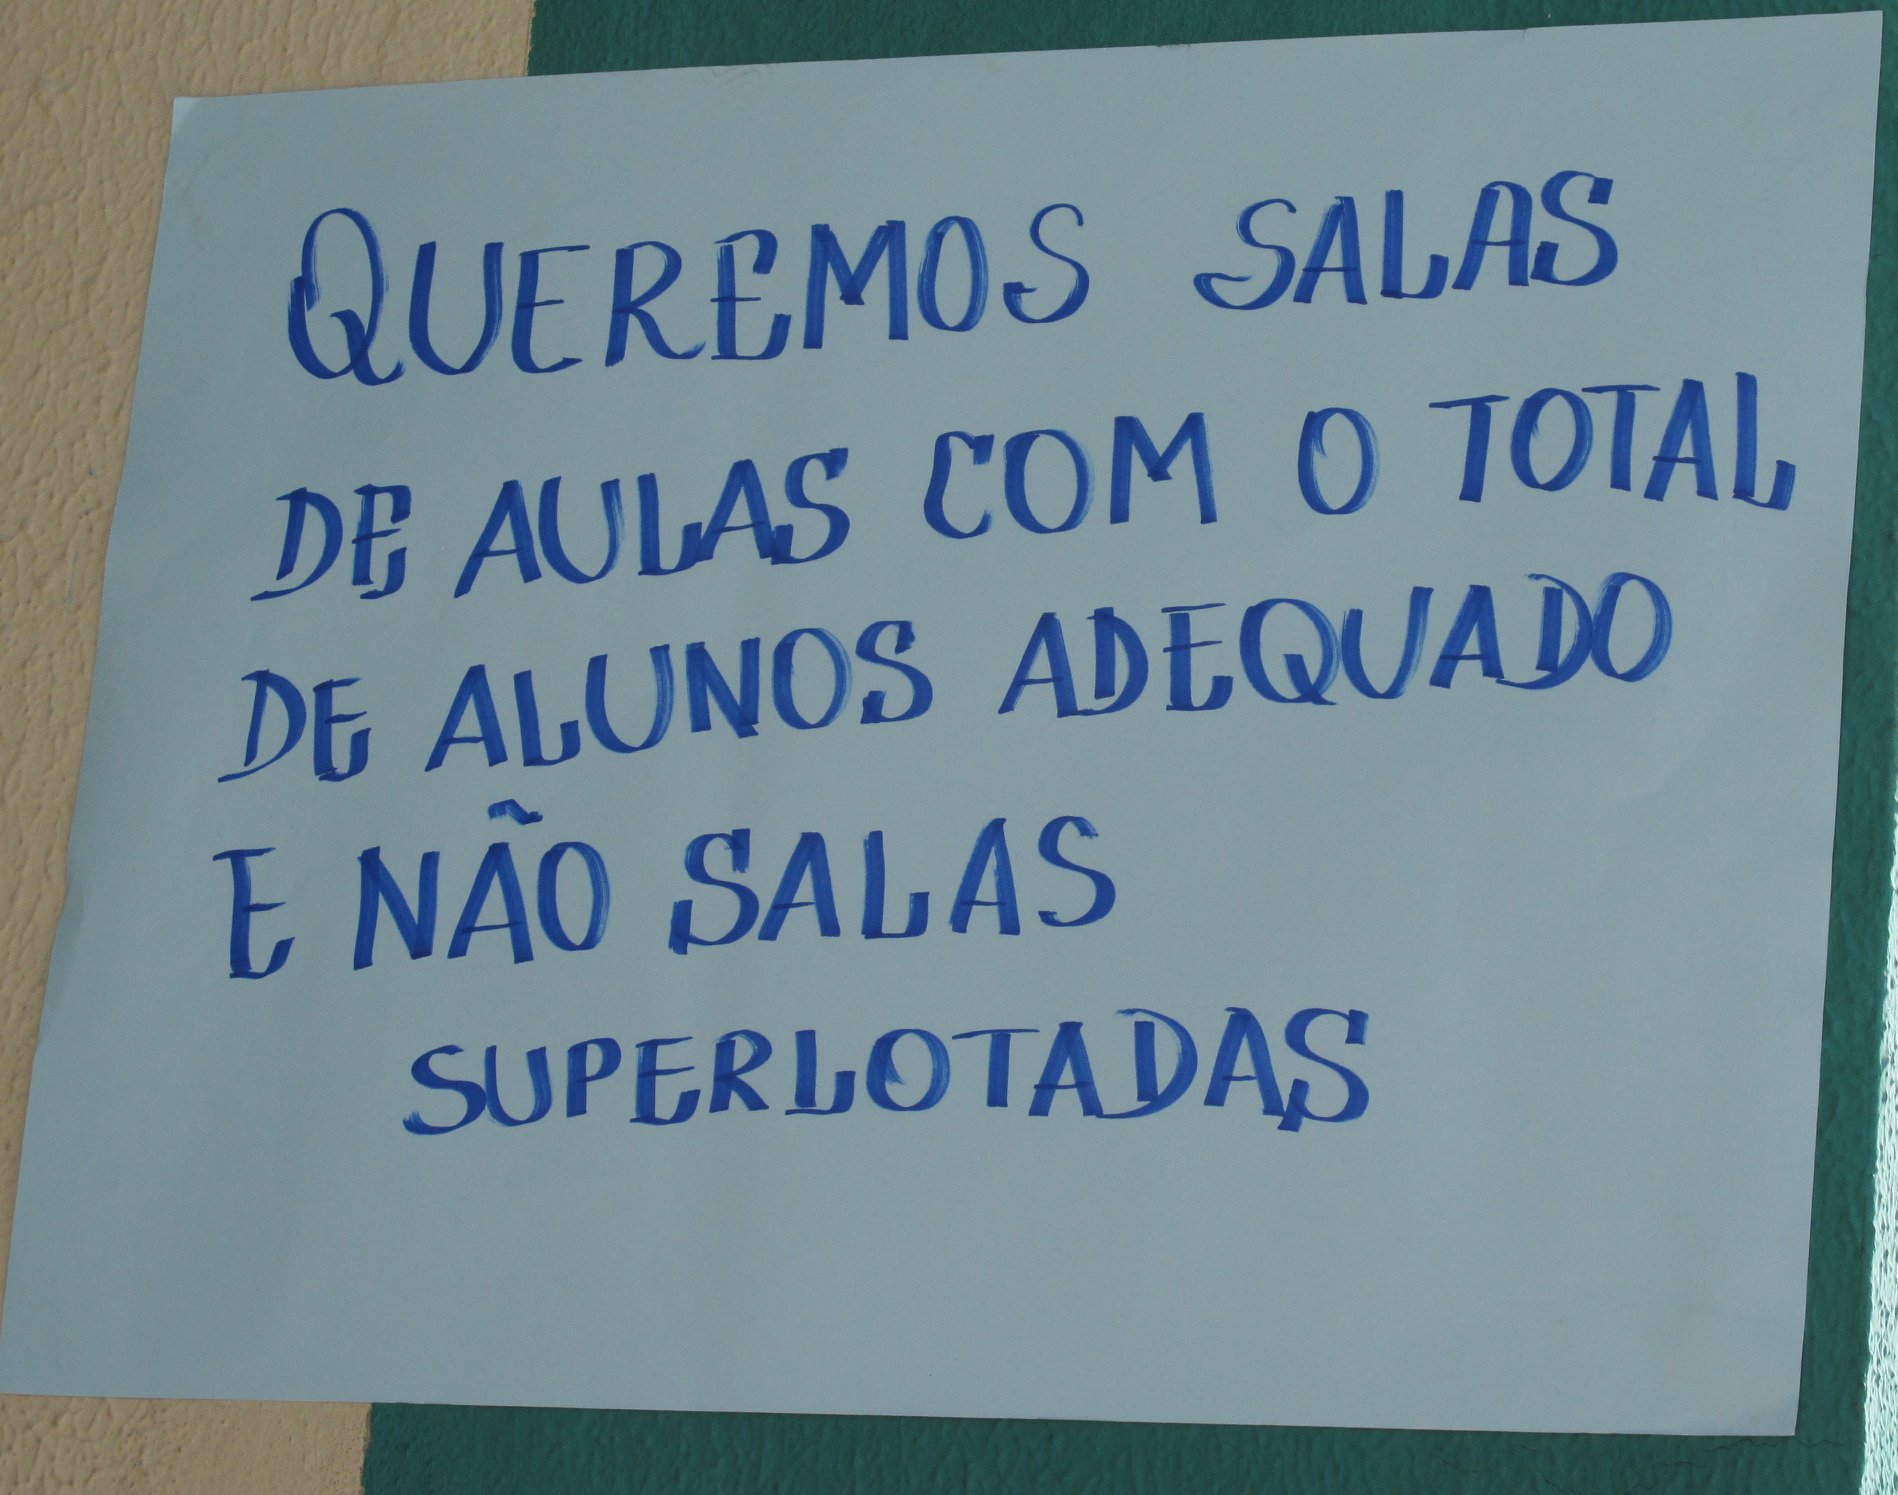 QUEREMOS SALAS
DE AULAS COM O TOTAL
DE ALUNOS ADEQUADO
E NÃO SALAS
SUPERLOTADAS